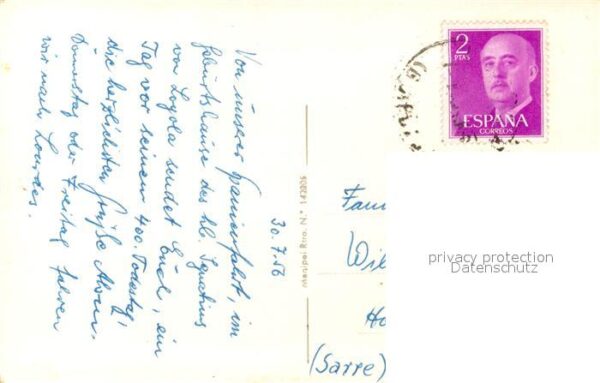 Von unserer Spanienfahrt, im
Geburtshause des hl. Ignatius
von Loyola sendet Euch, ein
Tag vor seinem 400. Todestag,
die herzlichsten Grüße Alwin.
Donnerstag oder Freitag fahren
wir nach Lourdes.
30.7.56
Manipel Rtro. N.º 142805
2
PTAS
ESPAÑA
CORREOS
Fam
Wil
Ho
(Sarre)
privacy protection
Datenschutz